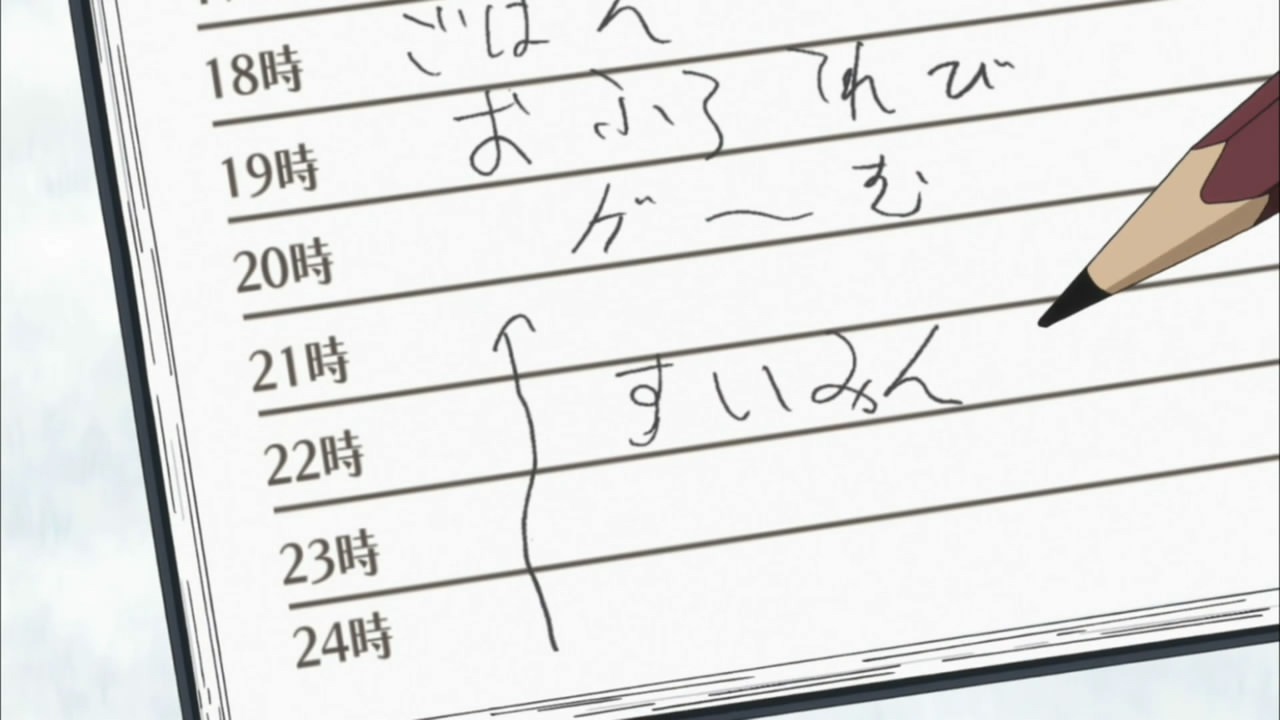 18時 ごはん
19時 おふろ てれび
20時 げーむ
21時
22時 すいみん
23時
24時